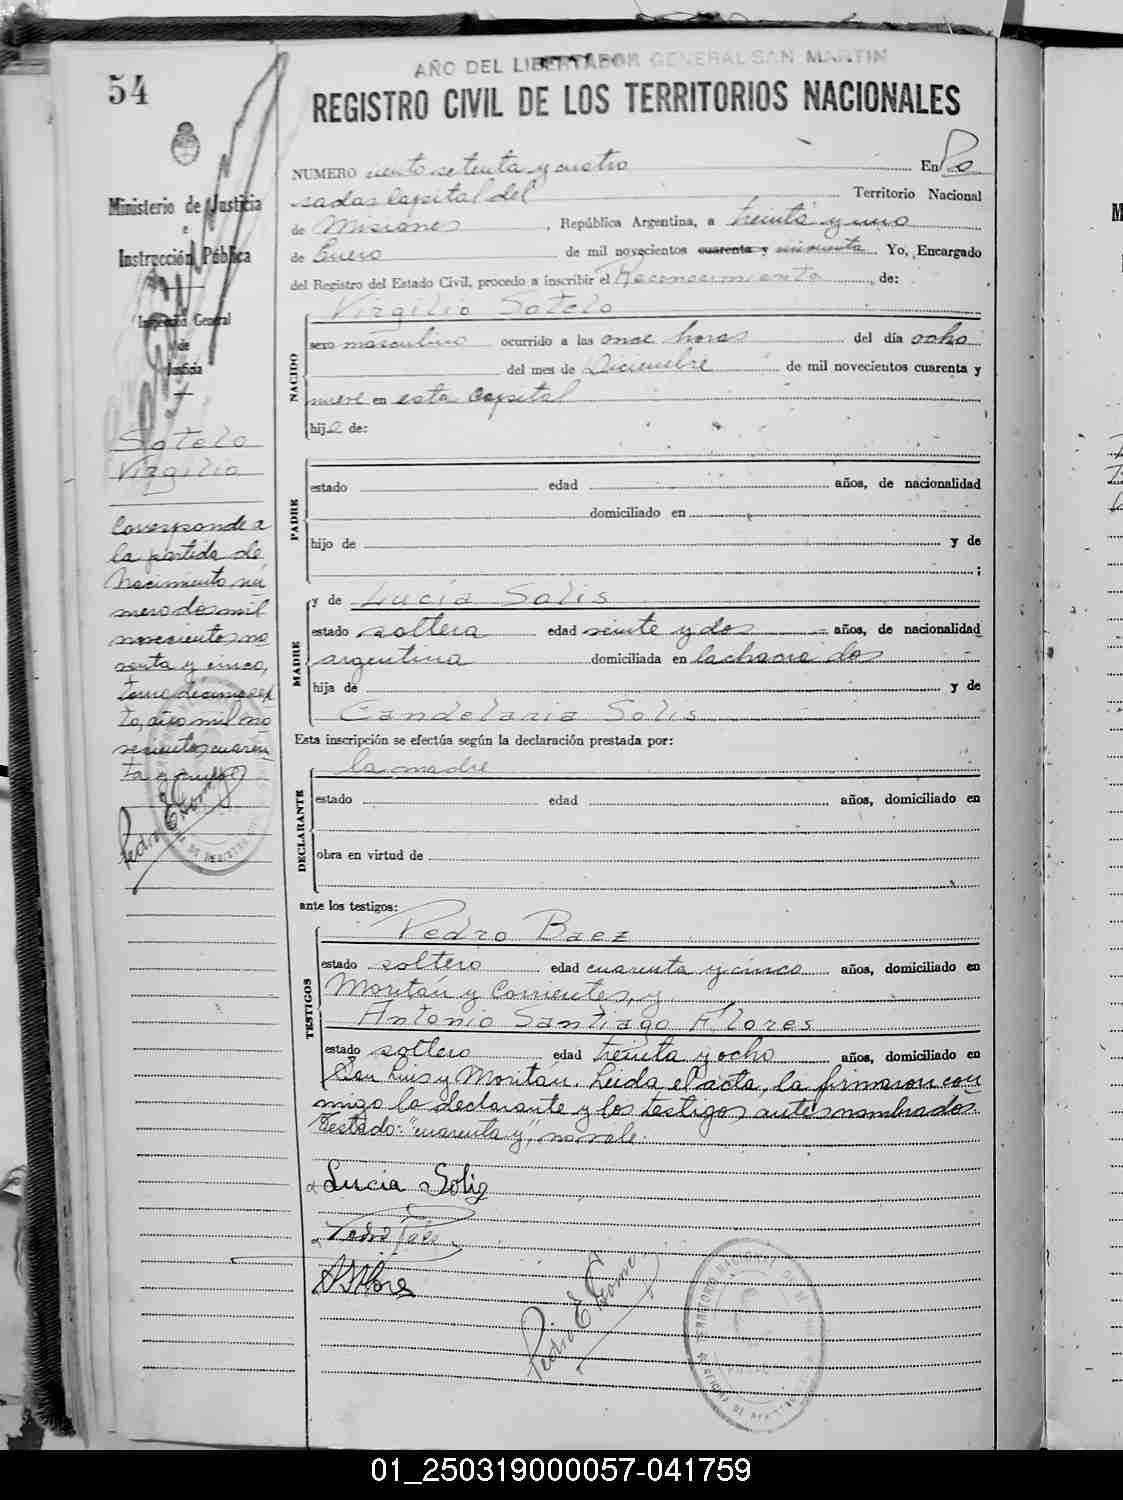 AÑO DEL LIBERTADOR GENERAL SAN MARTIN
54
REGISTRO CIVIL DE LOS TERRITORIOS NACIONALES
Ministerio de Justicia
e
Instrucción Pública
Inspección General
de
Justicia
Sotelo
Virgilio
Corresponde a
la partida de
Nacimiento nú
mero dos mil
novecientos no
venta y cinco,
tomo décimosex
to, año mil no
vecientos cuaren
ta y nueve
Pedro E Gome
NUMERO ciento setenta y cuatro En Po
sadas Capital del Territorio Nacional
de Misiones, República Argentina, a treinta y uno
de Enero de mil novecientos cuarenta y cincuenta Yo, Encargado
del Registro del Estado Civil, procedo a inscribir el Reconocimiento, de:
Virgilio Sotelo
NACIDO
sexo masculino ocurrido a las once horas del día ocho
del mes de Diciembre de mil novecientos cuarenta y
nueve en esta Capital
hijo de:
PADRE
estado edad años, de nacionalidad
domiciliado en
hijo de y de
;
MADRE
y de Lucía Solis
estado soltera edad veinte y dos años, de nacionalidad
argentina domiciliada en la chacra dos
hija de y de
Candelaria Solis
Esta inscripción se efectúa según la declaración prestada por:
la madre
DECLARANTE
estado edad años, domiciliado en
obra en virtud de
ante los testigos:
TESTIGOS
Pedro Baez
estado soltero edad cuarenta y cinco años, domiciliado en
Moritán y Corrientes, y
Antonio Santiago Flores
estado soltero edad treinta y ocho años, domiciliado en
San Luis y Moritán. Leida el acta, la firmaron con
migo la declarante y los testigos antes nombrados
Testado: "cuarenta y", no vale.
Lucia Solis
Pedro Báez
Pedro E Gome
01_250319000057-041759